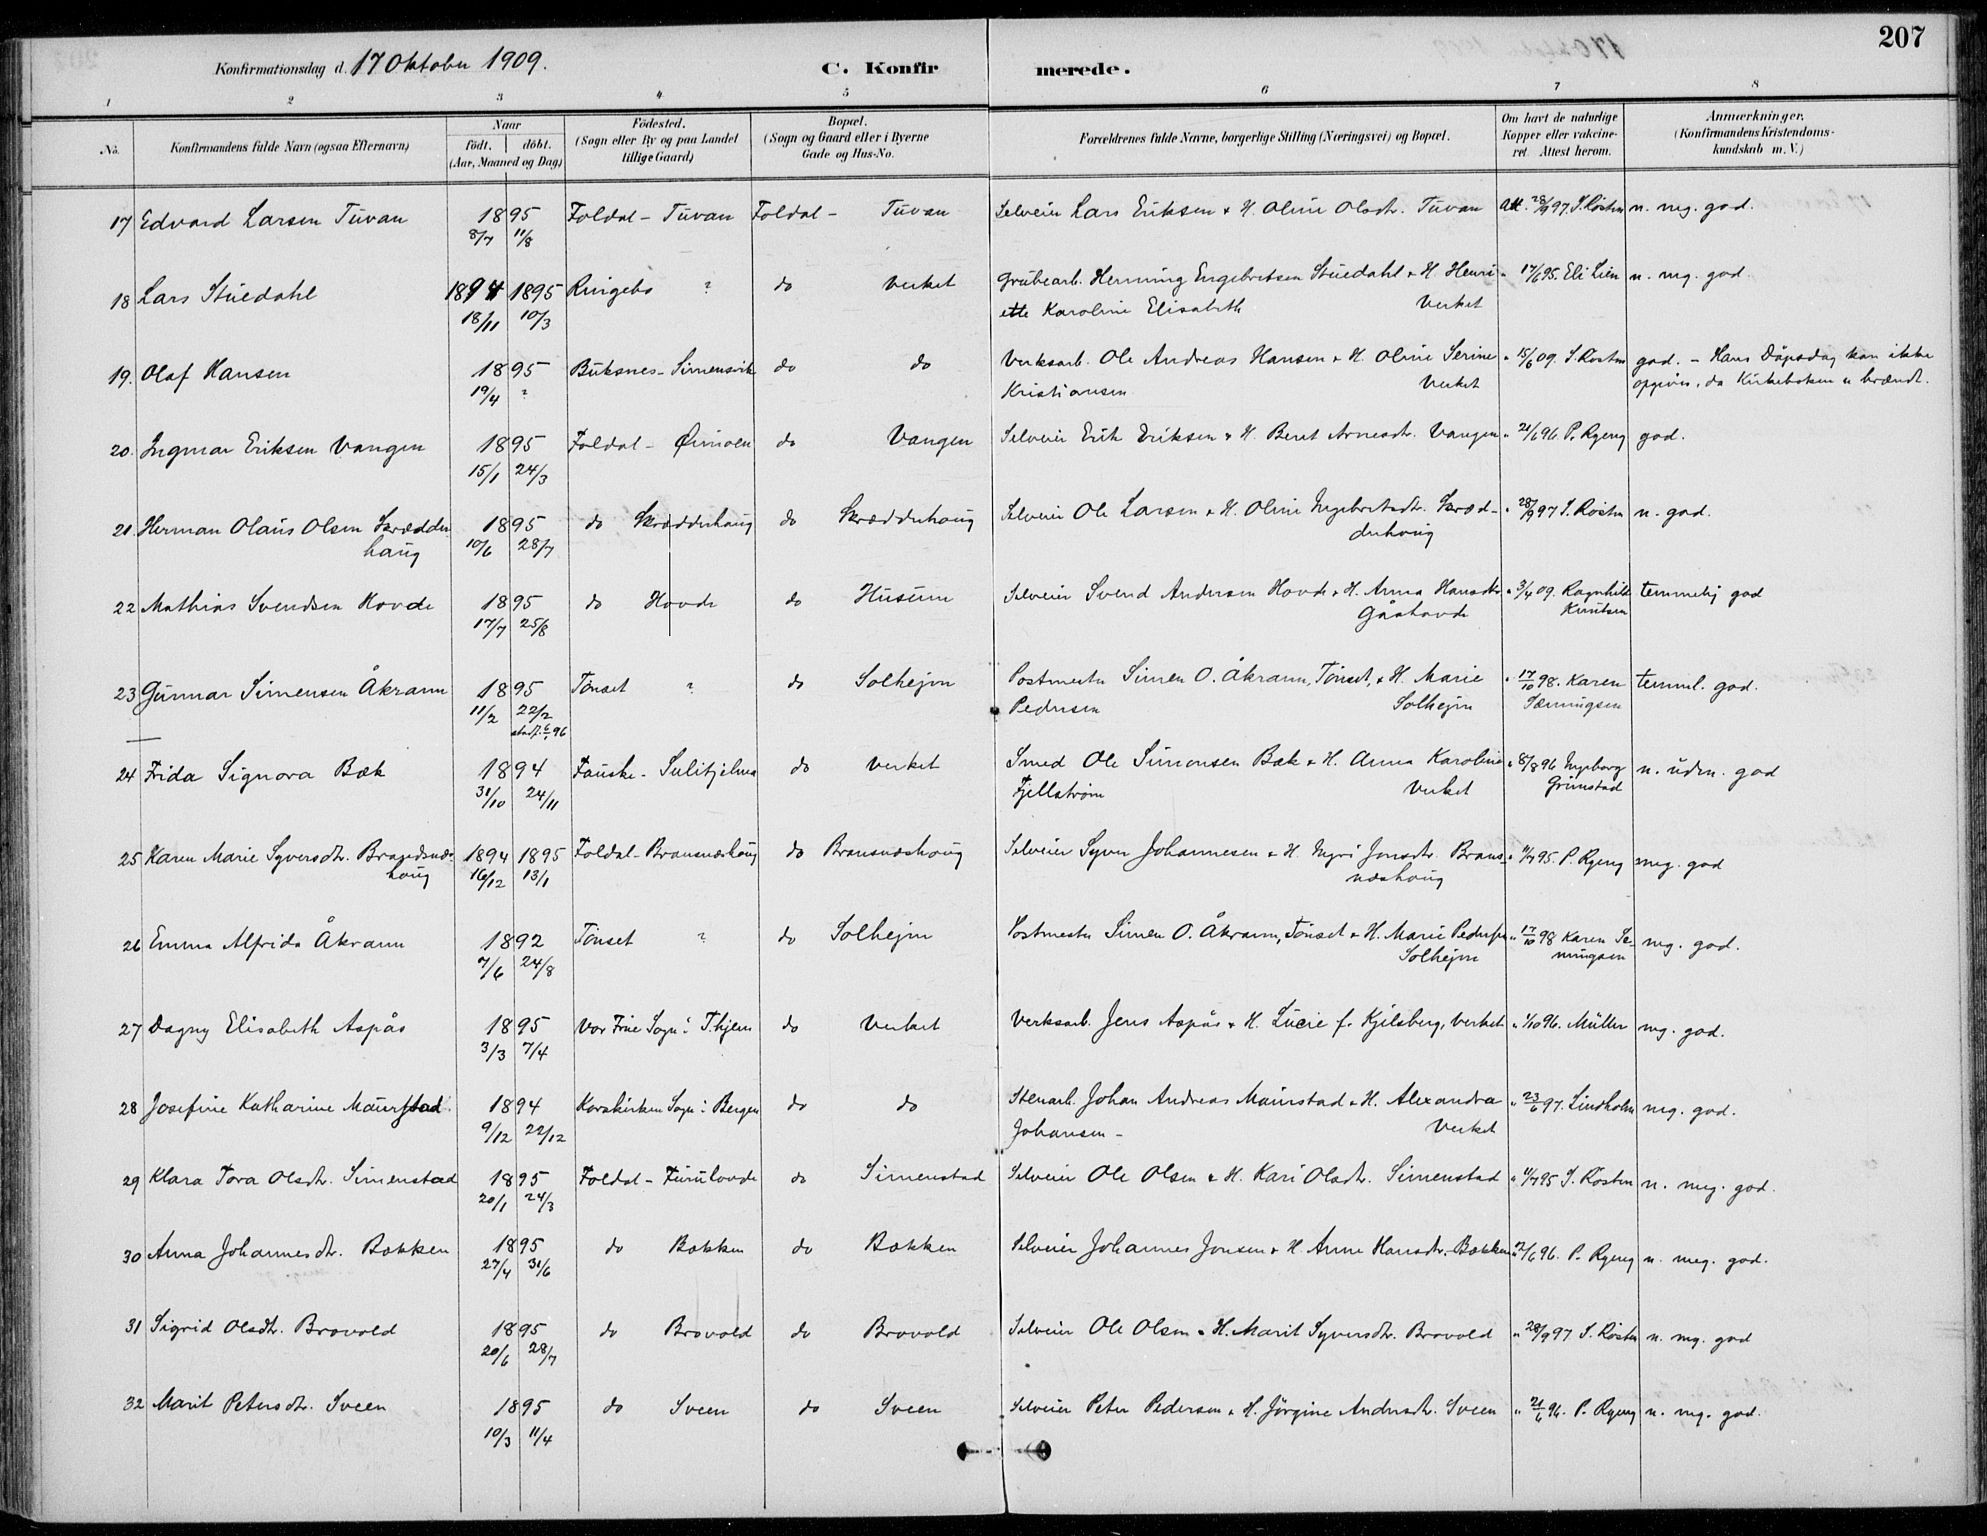 207
Konfirmationsdag d. 17 Oktober 1909. C. Konfirmerede.
1 2 3 4 5 6 7 8
No. Konfirmandens fulde Navn (ogsaa Efternavn) Naar født. døbt. (Aar, Maaned og Dag) Fødested. (Sogn eller By og paa Landet tillige Gaard) Bopæl. (Sogn og Gaard eller i Byerne Gade og Hus-No. Forældrenes fulde Navne, borgerlige Stilling (Næringsvei) og Bopæl. Om havt de naturlige Kopper eller vakcineret. Attest herom. Anmærkninger. (Konfirmandens Kristendomskundskab m. V.)
17 Edvard Larsen Tuvan 1895 Foldal - Tuvan Foldal - Tuvan Selveier Lars Eriksen & H. Oline Olsdtr. Tuvan Att. 28/9 97. S. Rosten n. meg. god.
8/7 11/8
18 Lars Stuedahl 1894 1895 Ringebo ? do Verket Grubearb. Henning Engebretsen Stuedahl & H. Henri- " 17/6 95. Eli Lien n. meg. god.
18/11 10/3 ette Karoline Elisabeth Verket
19. Olaf Hansen 1895 Buksnes - Simensvik do do Verksarb. Ole Andreas Hansen & H. Oline Serine " 15/6 09. S. Rosten god. - Hans Dåpsdag kan ikke
19/4 ? Kristiansen Verket opgives, da Kirkeboken er brændt.
20. Ingmar Eriksen Vangen 1895 Foldal - Øimoen do Vangen Selveier Erik Eriksen & H. Beret Arnesdtr. Vangen " 21/6 96 P. Ryeng god.
15/1 24/3
21. Herman Olaus Olsen Skrædder 1895 do Skrædderhaug do Skrædderhoug Selveier Ole Larsen & H. Oline Ingebretsdtr. Skræd- " 28/9 97 S. Rosten n. god.
haug 10/6 28/7 derhoug
22 Mathias Svendsen Hovde 1895 do Hovde do Husum Selveier Svend Andersen Hovde & H. Anna Hansdtr. " 3/4 09. Ragnhild temmelig god
17/7 25/8 Gåshovde Knutsen
23 Gunnar Simensen Åkrann 1895 Tönset ? do Solhejm Postmester Simen O. Åkrann, Tönset, & H. Marie " 17/10 98. Karen temml. god.
11/2 22/2 Pedersen Solhejm Sæmingsen
stadf. 6/1 96
24 Frida Signora Bæk 1894 Fauske - Sulitjelma do Verket Smed Ole Simonsen Bæk & H. Anna Karoline " 8/8 96 Ingeborg n. uden. god
31/10 24/11 Fjellström Verket Grimstad
25 Karen Marie Syversdtr. Brandsnæs- 1894 1895 Foldal - Bransnæshöug do Bransnæshoug Selveier Syver Johannesen & H. Ingri Jonsdtr. Brans- " 11/7 95. P. Ryeng meg. god
houg 16/12 13/1 næshoug
26 Emma Alfrida Åkrann 1892 Tönset ? do Solhejm Postmester Simen O. Åkrann, Tönset & H. Marie Pedersen " 17/10 98 Karen Se- mg. god.
7/6 24/8 Solhejm mingsen
27 Dagny Elisabeth Aspås 1895 Vor Frue Sogn i T.hjem do Verket Verksarb. Jens Aspås & H. Lucie f. Kjelsberg, Verket " 1/10 96. Müller mg. god.
3/3 7/4
28 Josefine Katharine Maurstad 1894 Korskirken Sogn i Bergen do do Stenarb. Johan Andreas Maurstad & H. Alexandra " 23/6 97. Lindholm mg. god.
9/12 22/12 Johansen - Verket
29 Klara Tora Olsdtr. Simenstad 1895 Foldal - Furulovde do Simenstad Selveier Ole Olsen & H. Kari Olsdtr. Simenstad " 11/7 95 S. Rosten n. meg. god.
20/1 24/3
30 Anna Johannesdtr. Bækken 1895 do Bækken do Bækken Selveier Johannes Jonsen & H. Anne Hansdtr. Bækken 21/6 96. P. Ryeng n. meg. god.
27/4 31/6
31 Sigrid Olsdtr. Brovold 1895 do Brovold do Brovold Selveier Ole Olsen & H. Marit Syversdtr. Brovold " 28/9 97 S. Rosten n. mg. god
20/6 28/7
32 Marit Petersdtr. Sveen 1895 do Sveen do Sveen Selveier Peter Pedersen & H. Jörgine Andersdtr. Sveen " 21/6 96. P. Ryeng n. mg. god.
10/3 11/4